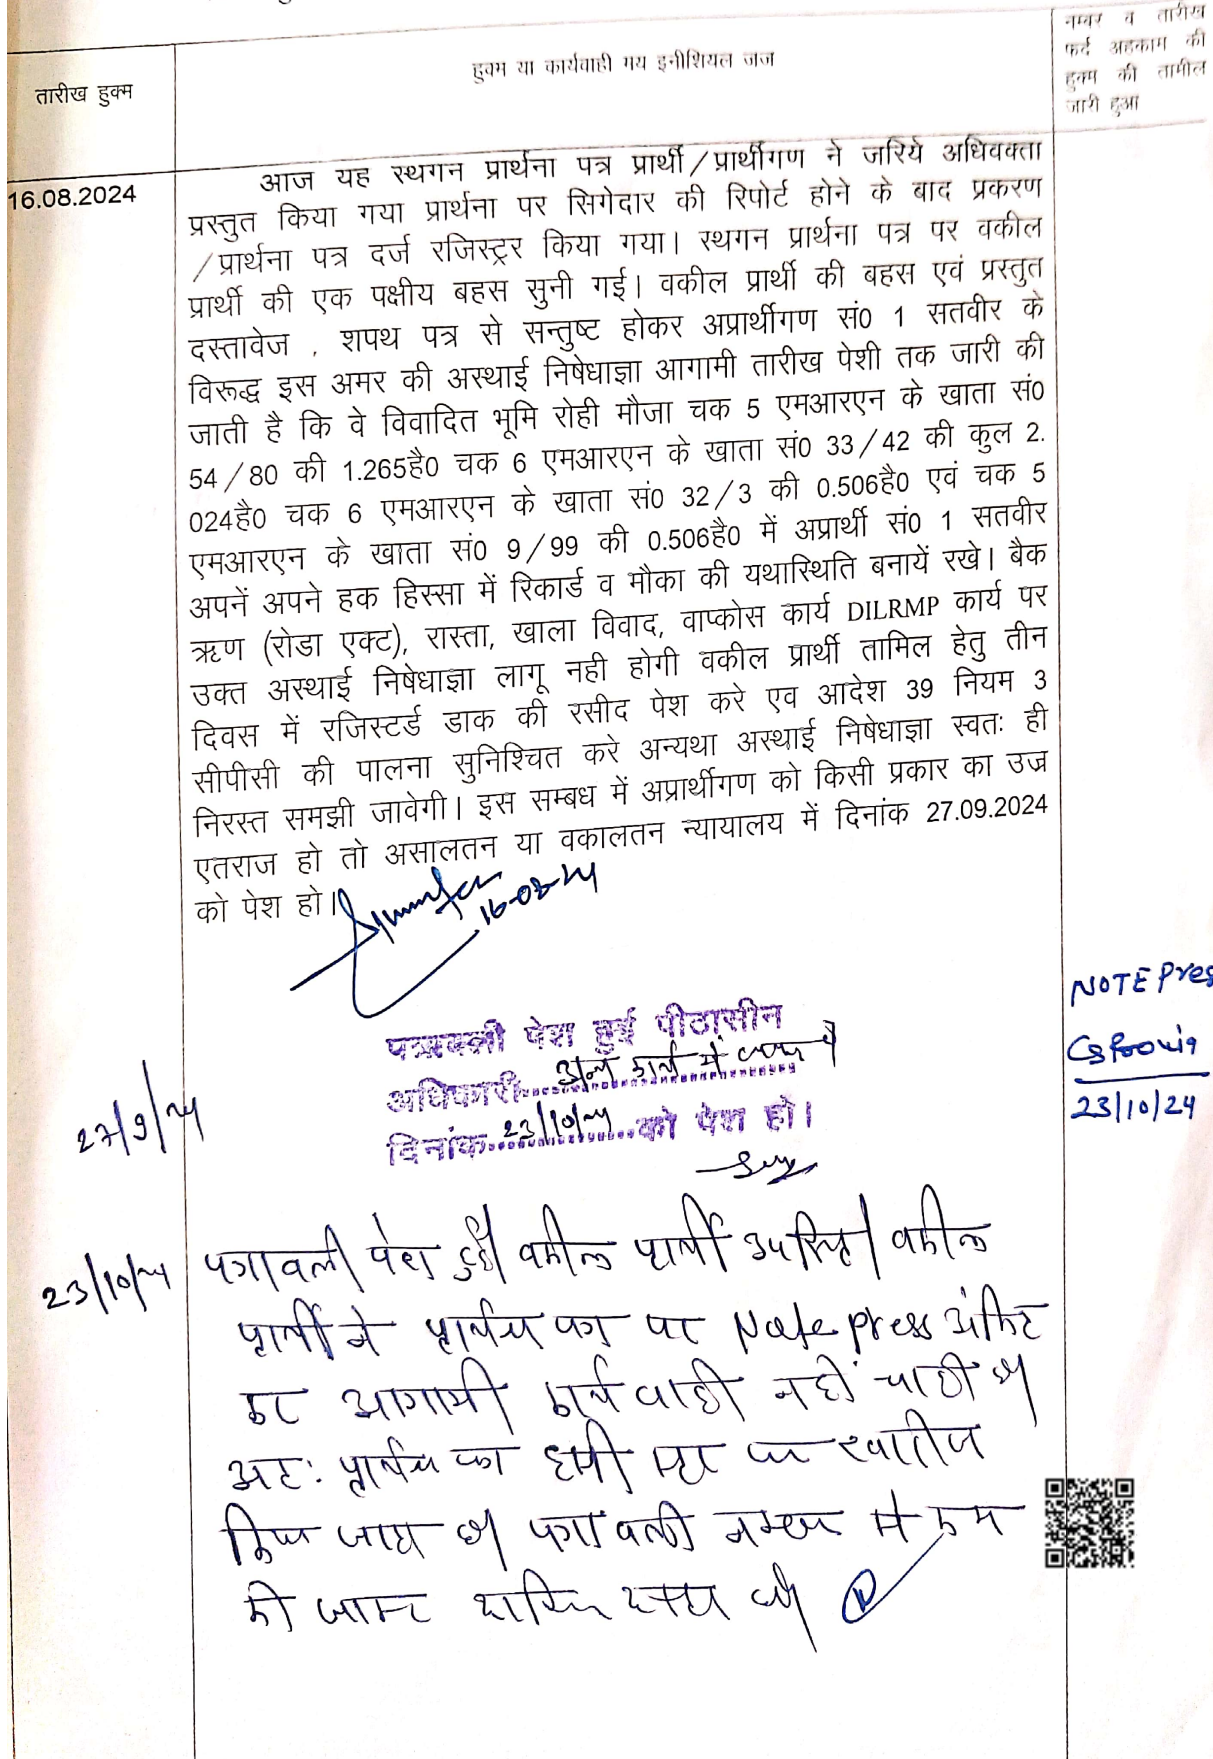 नम्बर व तारीख
फर्द अहकाम की
हुक्म की तामील
जारी हुआ
हुक्म या कार्यवाही मय इनीशियल जज
तारीख हुक्म
16.08.2024
आज यह स्थगन प्रार्थना पत्र प्रार्थी/प्रार्थीगण ने जरिये अधिवक्ता
प्रस्तुत किया गया प्रार्थना पर सिगेदार की रिपोर्ट होने के बाद प्रकरण
/प्रार्थना पत्र दर्ज रजिस्ट्रर किया गया। स्थगन प्रार्थना पत्र पर वकील
प्रार्थी की एक पक्षीय बहस सुनी गई। वकील प्रार्थी की बहस एवं प्रस्तुत
दस्तावेज , शपथ पत्र से सन्तुष्ट होकर अप्रार्थीगण सं0 1 सतवीर के
विरूद्ध इस अमर की अस्थाई निषेधाज्ञा आगामी तारीख पेशी तक जारी की
जाती है कि वे विवादित भूमि रोही मौजा चक 5 एमआरएन के खाता सं0
54/80 की 1.265है0 चक 6 एमआरएन के खाता सं0 33/42 की कुल 2.
024है0 चक 6 एमआरएन के खाता सं0 32/3 की 0.506है0 एवं चक 5
एमआरएन के खाता सं0 9/99 की 0.506है0 में अप्रार्थी सं0 1 सतवीर
अपनें अपने हक हिस्सा में रिकार्ड व मौका की यथास्थिति बनायें रखे। बैक
ऋण (रोडा एक्ट), रास्ता, खाला विवाद, वाप्कोस कार्य DILRMP कार्य पर
उक्त अस्थाई निषेधाज्ञा लागू नही होगी वकील प्रार्थी तामिल हेतु तीन
दिवस में रजिस्टर्ड डाक की रसीद पेश करे एव आदेश 39 नियम 3
सीपीसी की पालना सुनिश्चित करे अन्यथा अस्थाई निषेधाज्ञा स्वतः ही
निरस्त समझी जावेगी। इस सम्बध में अप्रार्थीगण को किसी प्रकार का उज्र
एतराज हो तो असालतन या वकालतन न्यायालय में दिनांक 27.09.2024
को पेश हो।
16-08-24
NOTE Pres
23/10/24
27/9/24
पत्रावली पेश हुई पीठासीन
अधिकारी अन्य कार्य में व्यस्त है
दिनांक 23/10/24 को पेश हो।
23/10/24
पत्रावली पेश हुई। वकील प्रार्थी उपस्थित। वकील
प्रार्थी ने प्रार्थना पत्र पर Note press अंकित
कर आगामी कार्यवाही नहीं चाही है।
अतः प्रार्थना पत्र इसी स्तर पर खारीज
किया जाता है। पत्रावली नम्बर से कम
की जाकर दाखिल दफ्तर हो।